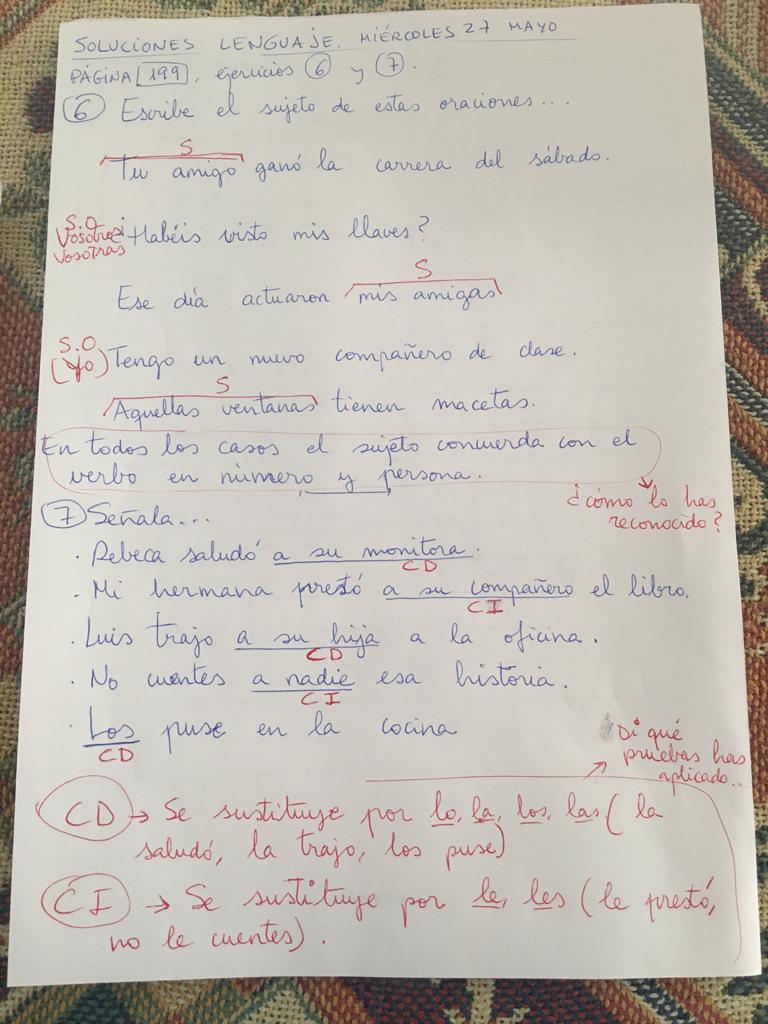 SOLUCIONES LENGUAJE. MIÉRCOLES 27 MAYO
PÁGINA 199, ejercicios 6 y 7.
6 Escribe el sujeto de estas oraciones...
S
Tu amigo ganó la carrera del sábado.
S.O
Vosotros/
Vosotras
¿Habéis visto mis llaves?
S
Ese día actuaron mis amigas
S.O
(Yo) Tengo un nuevo compañero de clase.
S
Aquellas ventanas tienen macetas.
En todos los casos el sujeto concuerda con el
verbo en número y persona.
¿cómo lo has
reconocido?
7 Señala...
· Rebeca saludó a su monitora.
CD
· Mi hermana prestó a su compañero el libro.
CI
· Luis trajo a su hija a la oficina.
CD
· No cuentes a nadie esa historia.
CI
· Los puse en la cocina
CD
Di qué
pruebas has
aplicado...
CD → Se sustituye por lo, la, los, las (la
saludó, la trajo, los puse)
CI → Se sustituye por le, les (le prestó,
no le cuentes).